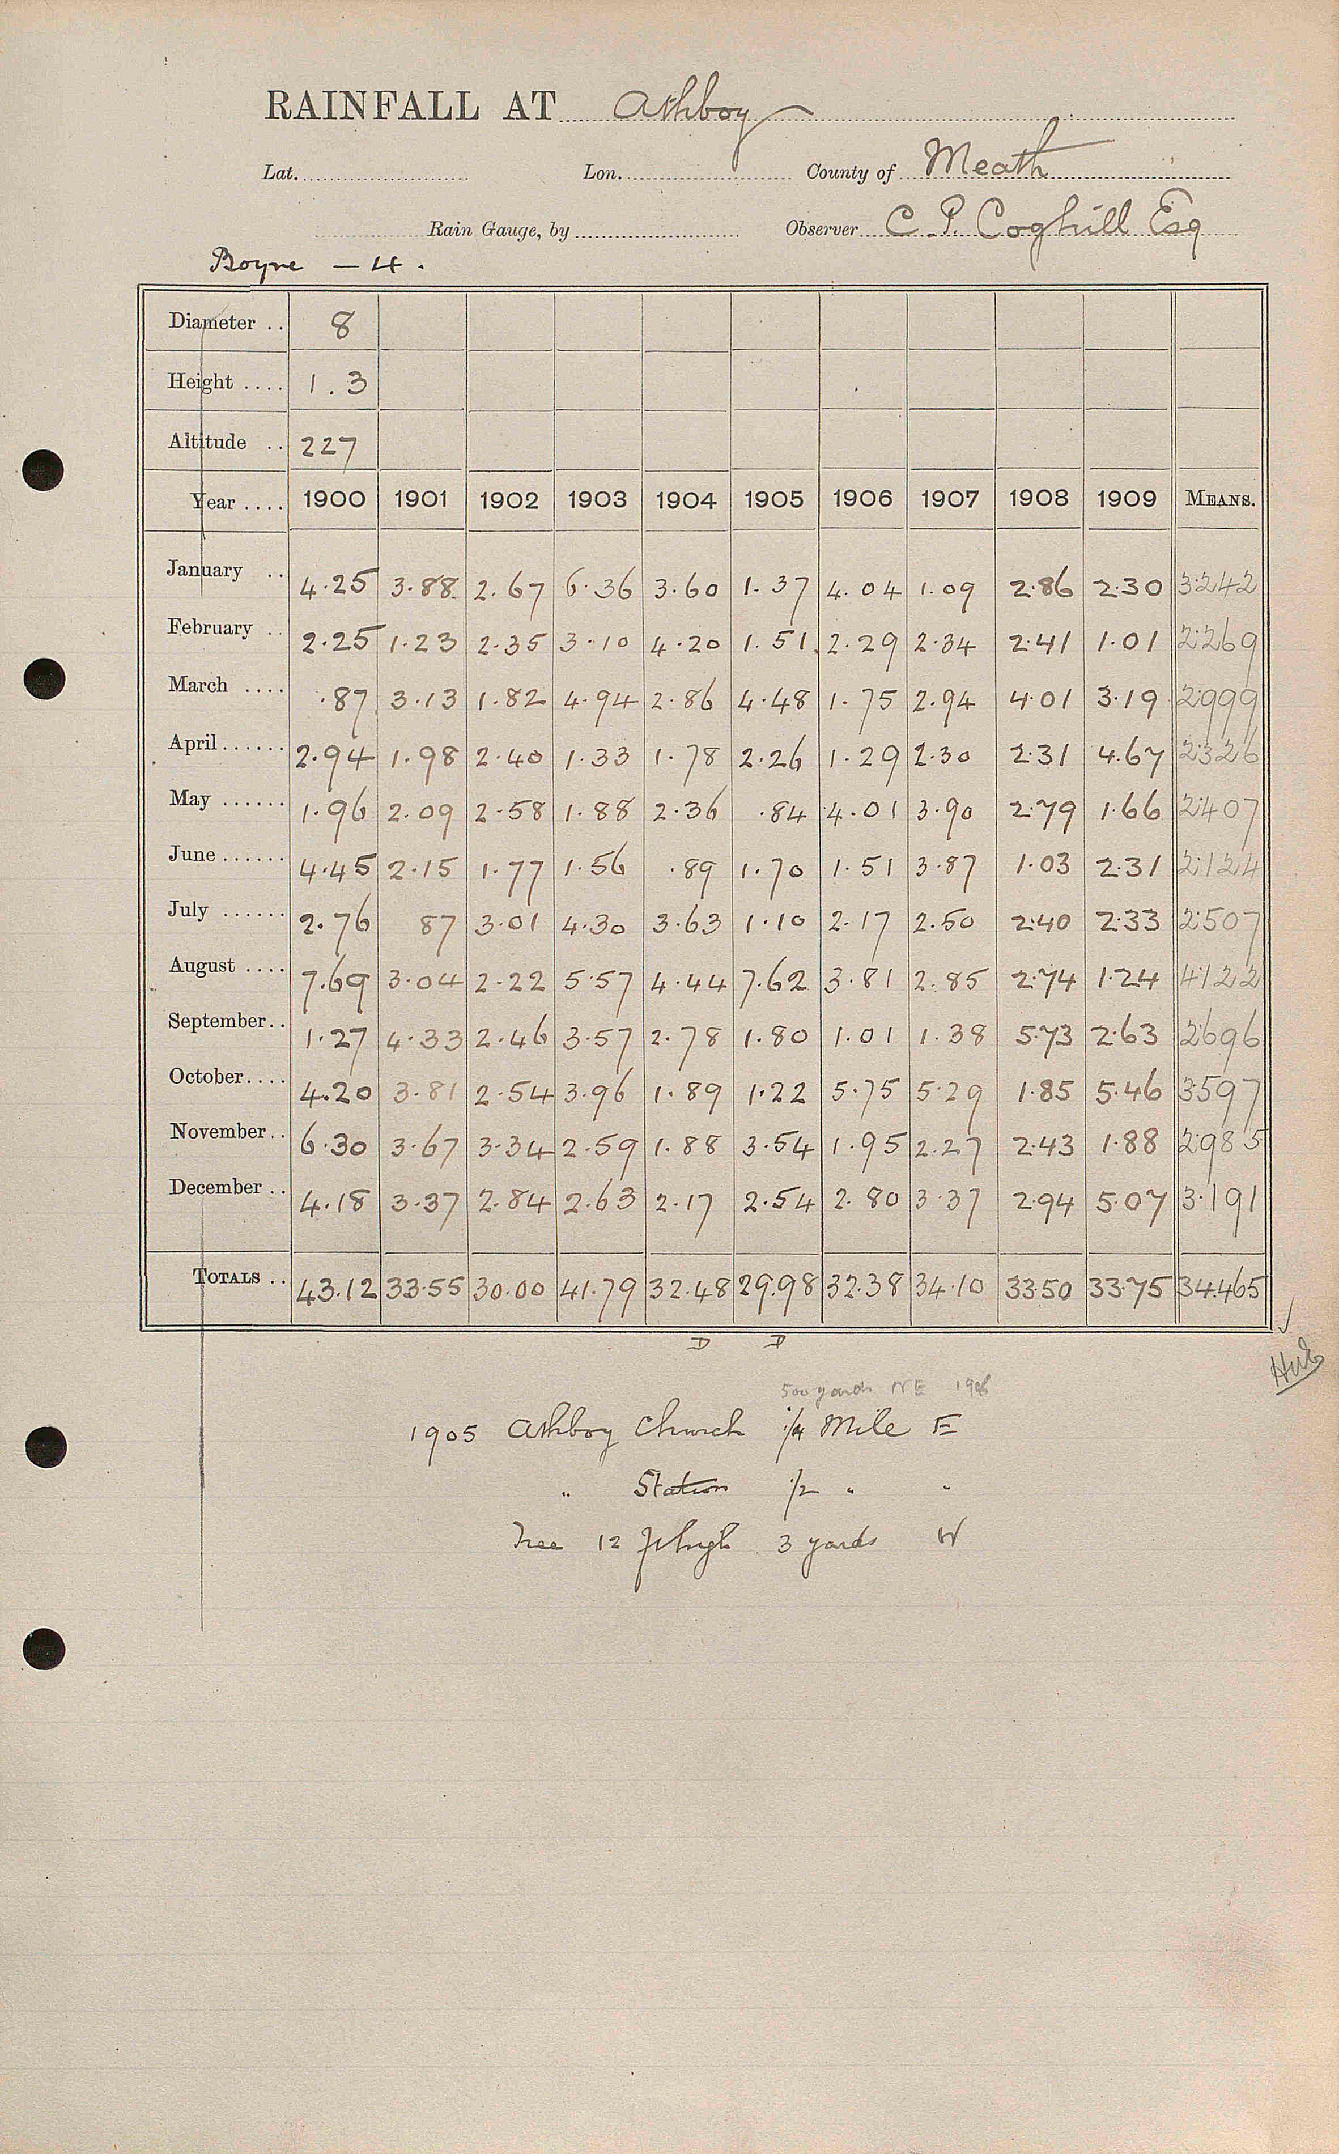 RAINFALL AT Athboy
Lat. Lon. County of Meath
Rain Gauge, by Observer C. P. Coghill Esq
Boyne — 4.
Diameter .. 8
Height .... 1.3
Altitude .. 227
Year .... 1900 1901 1902 1903 1904 1905 1906 1907 1908 1909 MEANS.
January .. 4.25 3.88 2.67 6.36 3.60 1.37 4.04 1.09 2.86 2.30 3.242
February .. 2.25 1.23 2.35 3.10 4.20 1.51 2.29 2.34 2.41 1.01 2.269
March .... .87 3.13 1.82 4.94 2.86 4.48 1.75 2.94 4.01 3.19 2.999
April ...... 2.94 1.98 2.40 1.33 1.78 2.26 1.29 2.30 2.31 4.67 2.326
May ...... 1.96 2.09 2.58 1.88 2.36 .84 4.01 3.90 2.79 1.66 2.407
June ...... 4.45 2.15 1.77 1.56 .89 1.70 1.51 3.87 1.03 2.31 2.124
July ...... 2.76 87 3.01 4.30 3.63 1.10 2.17 2.50 2.40 2.33 2.507
August .... 7.69 3.04 2.22 5.57 4.44 7.62 3.81 2.85 2.74 1.24 4.122
September .. 1.27 4.33 2.46 3.57 2.78 1.80 1.01 1.38 5.73 2.63 2.696
October .... 4.20 3.81 2.54 3.96 1.89 1.22 5.75 5.29 1.85 5.46 3.597
November .. 6.30 3.67 3.34 2.59 1.88 3.54 1.95 2.27 2.43 1.88 2.985
December .. 4.18 3.37 2.84 2.63 2.17 2.54 2.80 3.37 2.94 5.07 3.191
TOTALS .. 43.12 33.55 30.00 41.79 32.48 29.98 32.38 34.10 33.50 33.75 34.465
D D
500 yards NE 1906
1905 Athboy Church 1/4 Mile E
" Station 1/2 " "
Tree 12 ft high 3 yards W